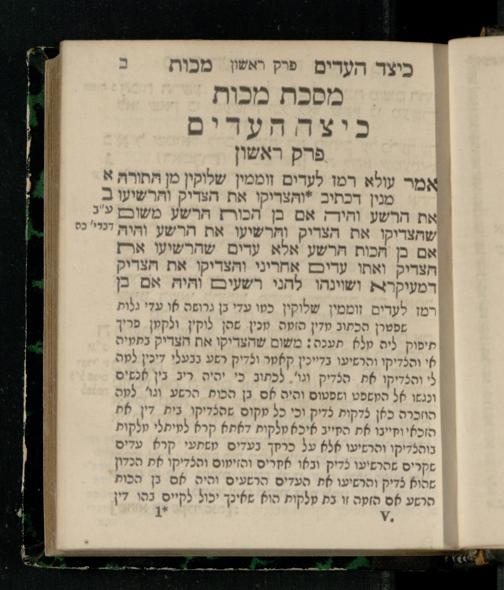 כיצד העדים פרק ראשון מכות ב
מסכת מכות
כיצד העדים
פרק ראשון
אמר עולא רמז לעדים זוממין שלוקין מן התורה א
מנין דכתיב *והצדיקו את הצדיק והרשיעו ב
את הרשע והיה אם בן הכות הרשע משום ע"ב
שהצדיקו את הצדיק והרשיעו את הרשע והיה דברי' כה
אם בן הכות הרשע אלא עדים שהרשיעו את
הצדיק ואתו עדים אחריני והצדיקו את הצדיק
דמעיקרא ושוינהו להני רשעים והיה אם בן
רמז לעדים זוממין שלוקין כמו עדי בן גרושה או עדי גלות
שפטרן הכתוב מדין הזמה מנין שהן לוקין ולקמן פריך
תיפוק ליה מלא תענה: משום שהצדיקו את הצדיק בתמיה
אי והצדיקו והרשיעו בדיינין קאמר וצדיק רשע בבעלי דינין למה
לי והצדיקו את הצדיק וגו'. לכתוב כי יהיה ריב בין אנשים
ונגשו אל המשפט ושפטום והיה אם בן הכות הרשע וגו' למה
הוזכרה כאן צדקות צדיק וכי כל מקום שהצדיקו בית דין את
הזכאי וחייבו את החייב איכא מלקות דאתא קרא למיתלי מלקות
בוהצדיקו והרשיעו אלא על כרחך בעדים משתעי קרא עדים
שקרים שהרשיעו צדיק ובאו אחרים והזימום והצדיקו את הנדון
שהוא צדיק והרשיעו את העדים הרשעים והיה אם בן הכות
הרשע אם הזמה זו בת מלקות הוא שאינך יכול לקיים בהו דין
1* V.